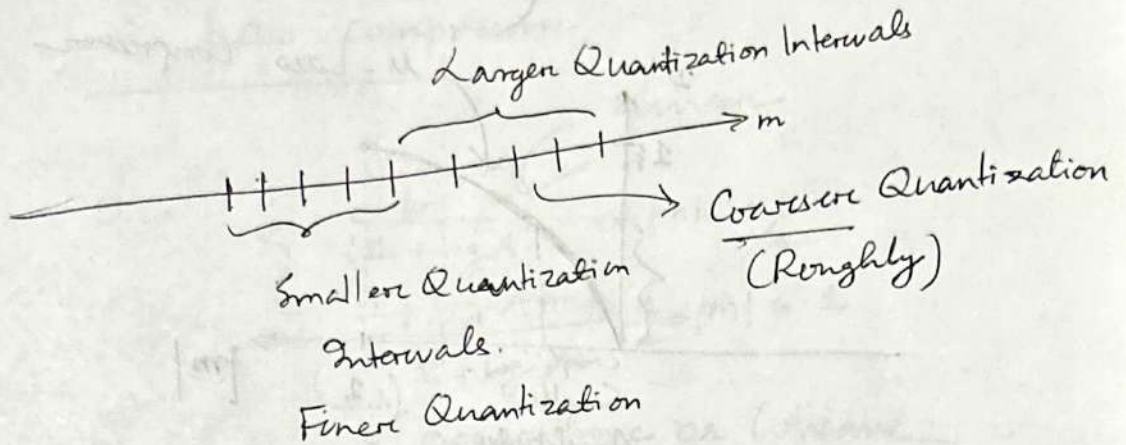 Larger Quantization Intervals
m
Coarser Quantization
(Roughly)
Smaller Quantization
Intervals.
Finer Quantization